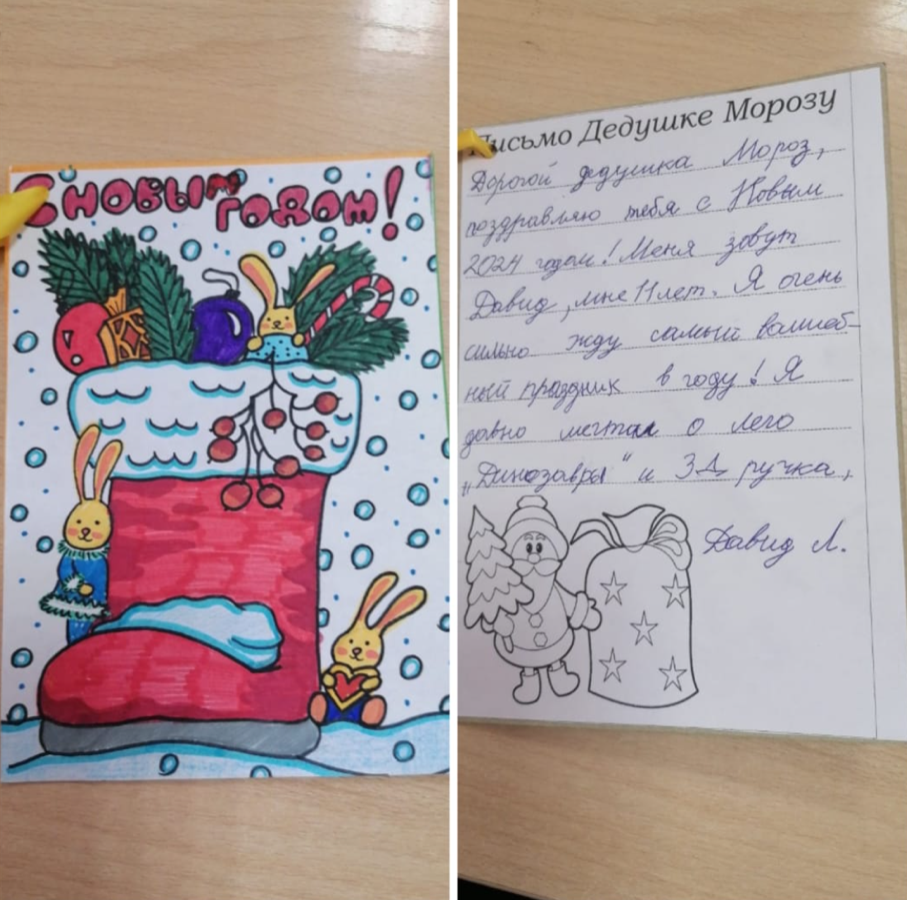 С НОВЫм
годом!
Письмо Дедушке Морозу
Дорогой дедушка Мороз,
поздравляю тебя с Новым
2024 годом! Меня зовут
Давид, мне 11 лет. Я очень
сильно жду самый волшеб-
ный праздник в году! Я
давно мечтал о лего
„Динозавры" и 3Д ручка,
Давид Л.